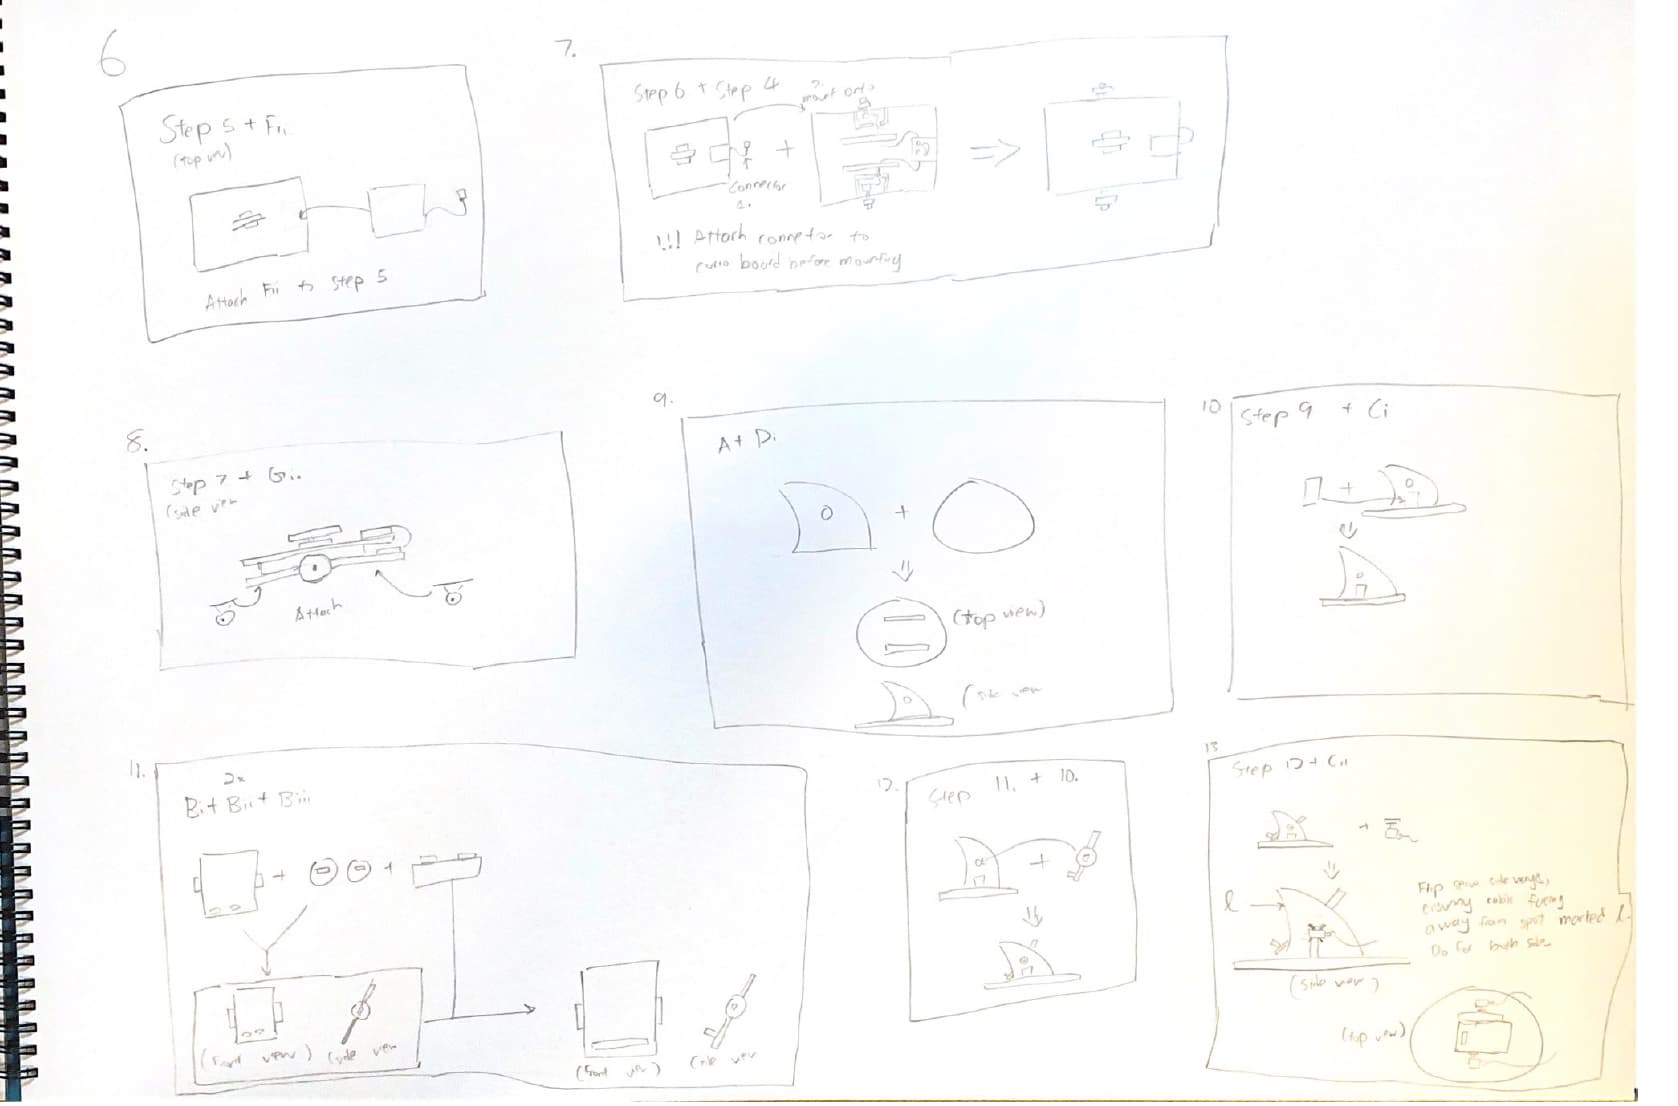 6
Step 5 + Fii
(top view)
Attach Fii to step 5
7.
Step 6 + Step 4
mount onto
+
Connector
!!! Attach connector to
board before mounting
8.
Step 7 + Gii
(side view
Attach
9.
A + Di
+
(top view)
(side view
10
Step 9 + Ci
+
11.
2x
Bi + Bii + Biii
+
+
(Front view)
(side view
(Front view)
(side view
12.
Step 11. + 10.
+
13
Step 12 + Cii
+
l
Flip servo sideways,
ensuring cable facing
away from spot marked l.
Do for both side
(side view)
(top view)